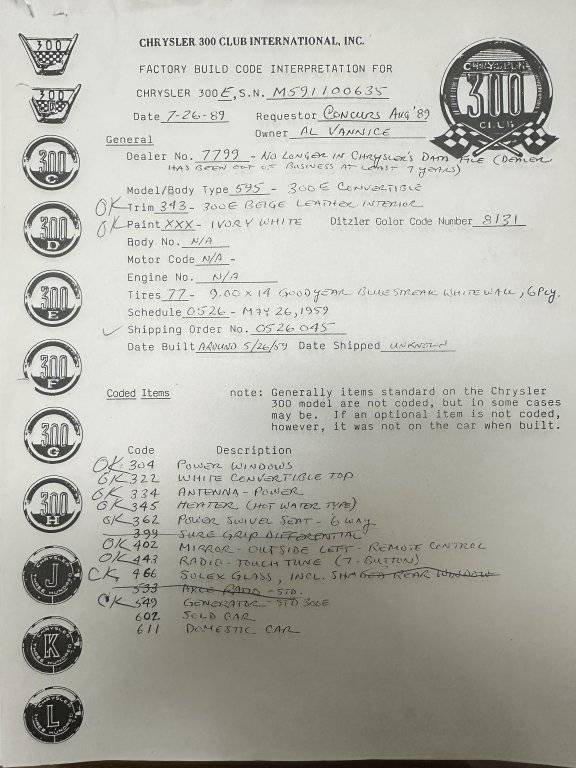 CHRYSLER 300 CLUB INTERNATIONAL, INC.
FACTORY BUILD CODE INTERPRETATION FOR
CHRYSLER 300 E, S.N. M591100635
Date 7-26-89 Requestor CONCURS AUG '89
Owner AL VANNICE
General
Dealer No. 7799 - NO LONGER IN CHRYSLER'S DATA FILE (DEALER
HAS BEEN OUT OF BUSINESS AT LEAST 7 YEARS)
Model/Body Type 595 - 300E CONVERTIBLE
OK Trim 343 - 300E BEIGE LEATHER INTERIOR
OK Paint XXX - IVORY WHITE Ditzler Color Code Number 8131
Body No. N/A
Motor Code N/A -
Engine No. N/A
Tires 77 - 9.00 x 14 GOODYEAR BLUESTREAK WHITEWALL, 6 PLY.
Schedule 0526 - MAY 26, 1959
✓ Shipping Order No. 0526 045
Date Built AROUND 5/26/59 Date Shipped UNKNOWN
Coded Items note: Generally items standard on the Chrysler
300 model are not coded, but in some cases
may be. If an optional item is not coded,
however, it was not on the car when built.
Code Description
OK 304 POWER WINDOWS
OK 322 WHITE CONVERTIBLE TOP
OK 334 ANTENNA - POWER
OK 345 HEATER (HOT WATER TYPE)
OK 362 POWER SWIVEL SEAT - 6 WAY
399 SURE GRIP DIFFERENTIAL
OK 402 MIRROR - OUTSIDE LEFT - REMOTE CONTROL
OK 443 RADIO - TOUCH TUNE (7-BUTTON)
OK 466 SOLEX GLASS, INCL. SHADED REAR WINDOW
533 AXLE RATIO - STD.
OK 549 GENERATOR - STD 300E
602 SOLD CAR
611 DOMESTIC CAR
300
300 B
300
C
300
D
300
E
300
F
300
G
300
H
J
CHRYSLER
THREE HUNDRED
K
CHRYSLER
THREE HUNDRED
L
CHRYSLER
THREE HUNDRED
CHRYSLER
300
CLUB